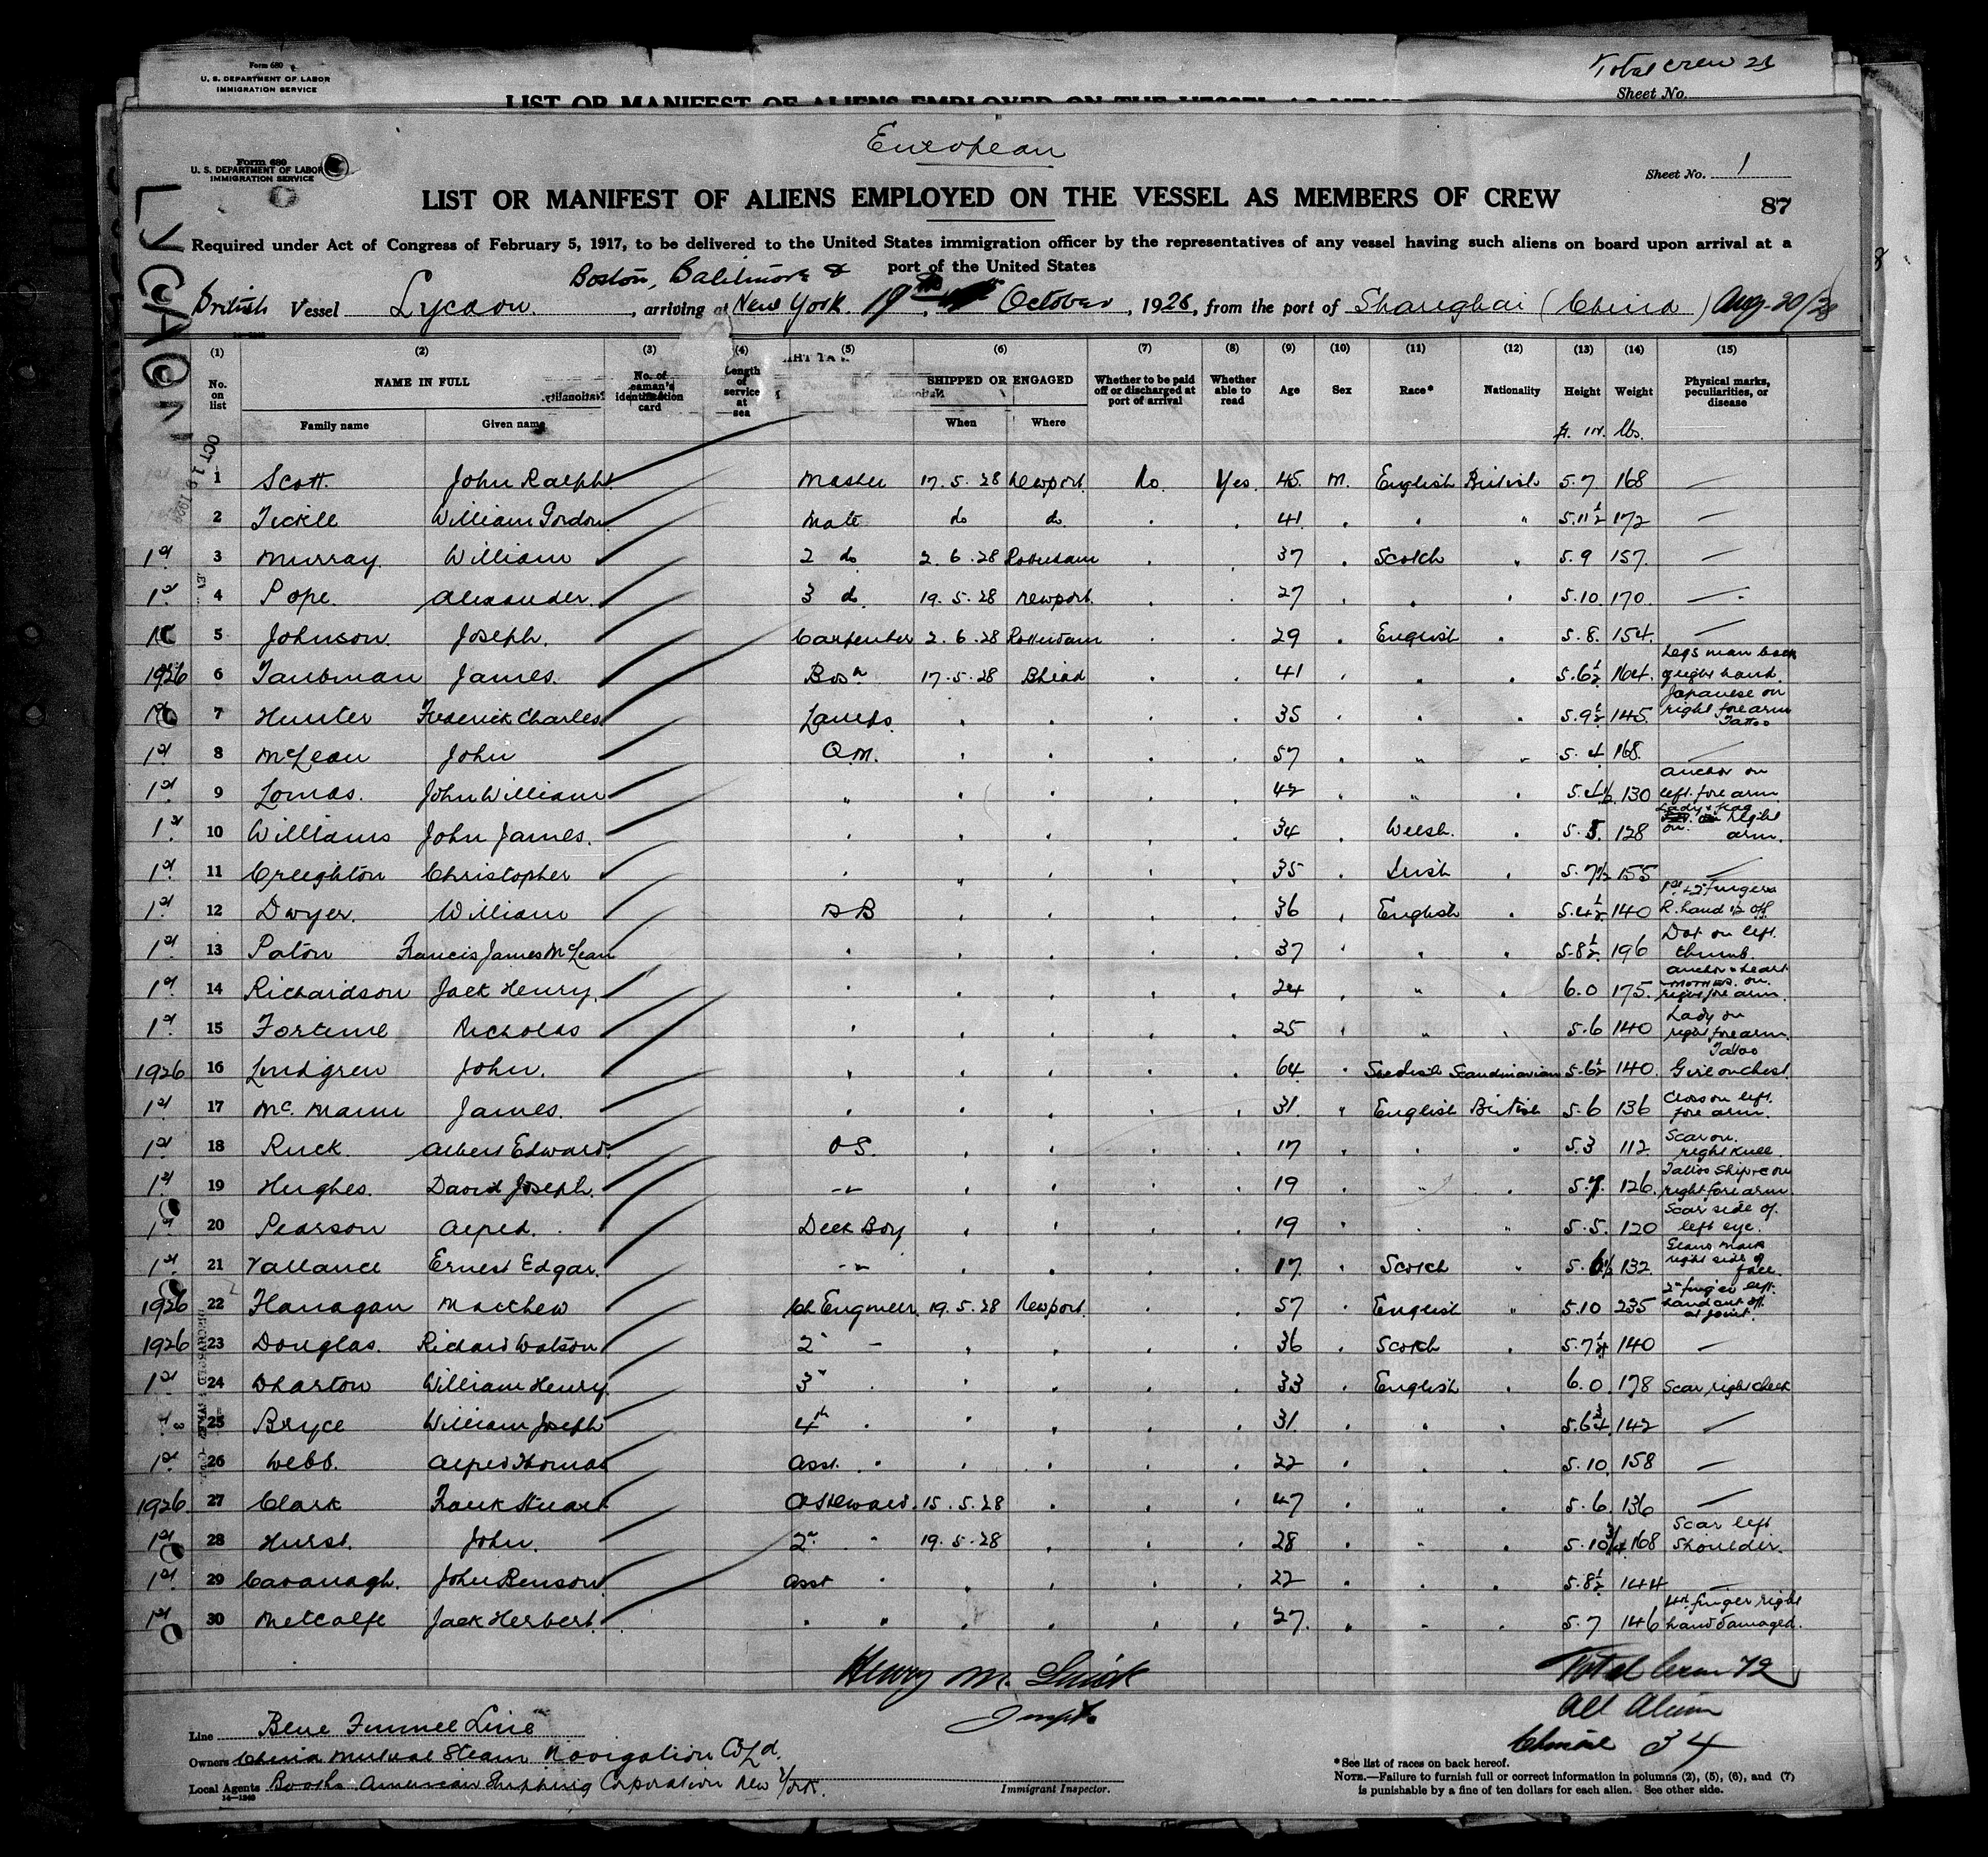 Form 680
U. S. DEPARTMENT OF LABOR
IMMIGRATION SERVICE
Total crew
Sheet No.
LIST OR MANIFEST OF ALIENS EMPLOYED ON THE VESSEL AS MEMB
European
Form 680
U. S. DEPARTMENT OF LABOR
IMMIGRATION SERVICE
Sheet No. 1
LIST OR MANIFEST OF ALIENS EMPLOYED ON THE VESSEL AS MEMBERS OF CREW
87
LYCAON
Required under Act of Congress of February 5, 1917, to be delivered to the United States immigration officer by the representatives of any vessel having such aliens on board upon arrival at a
port of the United States
Boston, Baltimore &
British Vessel Lycaon, arriving at New York. 19th October, 1928, from the port of Shanghai (China) Aug. 20/28
(1) (2) (3) (4) (5) (6) (7) (8) (9) (10) (11) (12) (13) (14) (15)
No. on list NAME IN FULL No. of seaman's identification card Length of service at sea SHIPPED OR ENGAGED Whether to be paid off or discharged at port of arrival Whether able to read Age Sex Race* Nationality Height Weight Physical marks, peculiarities, or disease
Family name Given name When Where ft. in. lbs.
1 Scott. John Ralph. Master 17.5.28 Newport. No. Yes. 45. M. English British 5.7. 168 —
2 Tickle William Gordon. Mate do do . . 41. . . " 5.11½ 172 —
1st 3 Murray. William 2 do 2.6.28 Rotterdam . . 37 . Scotch " 5.9 157. —
1st 4 Pope. Alexander. 3 do. 19.5.28 Newport. . . 27 . . " 5.10. 170. —
5 Johnson. Joseph. Carpenter 2.6.28 Rotterdam . . 29 . English . 5.8. 154. —
1926 6 Taubman James. Bosn 17.5.28 Bhead . . 41 . . . 5.6½ 164. Legs man back of right hand.
7 Hunter Frederick Charles Lamps. . . . . 35 . . . 5.9½ 145. Japanese on right forearm Tattoo
1st 8 McLean John Q.M. . . . . 57 . " " 5.4. 168. —
1st 9 Lomas. John William " . . . . 42 . " . 5.4½ 130 anchor on left. fore arm
1st 10 Williams John James. . . . . . 34 . Welsh. . 5.5. 128 Lady & Flag on. Right arm.
1st 11 Creighton Christopher . " . . . 35 . Irish . 5.7½ 155 —
1st 12 Dwyer. William AB . . . . 36 . English . 5.4½ 140 1st & 2nd Fingers R. hand ½ off
1st 13 Paton Francis James McLean . . . . . 37 . . . 5.8½ 196 Dot on left. thumb.
1st 14 Richardson Jack Henry. . . . . . 24 . " . 6.0 175. anchor & heart MOTHER. on. right fore arm.
1st 15 Fortune Nicholas . . . . . 25 . " . 5.6 140 Lady on right fore arm.
1926 16 Lindgren John. . . . . . 64. . Swedish Scandinavian 5.6½ 140. Tattoo Girl on chest.
1st 17 McMann James. . . . . . 31. " English British 5.6 136 Cross on left. fore arm.
1st 18 Ruck. Albert Edward. O S. . . . . 17 . . . 5.3 112. Scar on. right knee.
1st 19 Hughes. David Joseph. —"— . . . . 19 . " . 5.7. 126. Tattoo Ship &c on right fore arm.
1st 20 Pearson Alfred. Deck Boy . . . . 19 . . " 5.5. 120 Scar side of. left eye.
1st 21 Vallance Ernest Edgar. —"— . . . . 17. . Scotch " 132. right side of face.
1926 22 Flanagan Matthew Ch Engineer. 19.5.28 Newport. . . 57 . English " 5.10 235 2nd finger left. hand cut off. at joint.
1926 23 Douglas. Richard Watson 2nd — . . . . 36 . Scotch . 140 —
1st 24 Wharton William Henry. 3rd . . . . . 33 . English . 6.0. 178 Scar right cheek
25 Bryce William Joseph 4th . . . . . 31. . . . 5.6¾ 142 —
1st 26 Webb. Alfred Thomas Asst. . . . . . 22 . . . 5.10. 158 —
1926. 27 Clark Frank Stuart Ch Steward. 15.5.28 . . . 47 . " . 5.6. 136 —
1st 28 Hurst. John. 2nd " 19.5.28 . . . 28 . " . 5.10¾ 168 Scar left shoulder.
1st 29 Cavanagh. John Benson. Asst . . . . . 22 . . . 5.8½ 144 —
1st 30 Metcalfe Jack Herbert. . . . . . . 27. . . . 5.7 146 4th. finger right hand damaged.
Henry M.
Total Crew 72
All Alien
Chinese 34
Line Blue Funnel Line
Owners China Mutual Steam Navigation Co Ld.
Local Agents Booth American Shipping Corporation New York.
14—1240
Immigrant Inspector.
*See list of races on back hereof.
NOTE.—Failure to furnish full or correct information in columns (2), (5), (6), and (7)
is punishable by a fine of ten dollars for each alien. See other side.